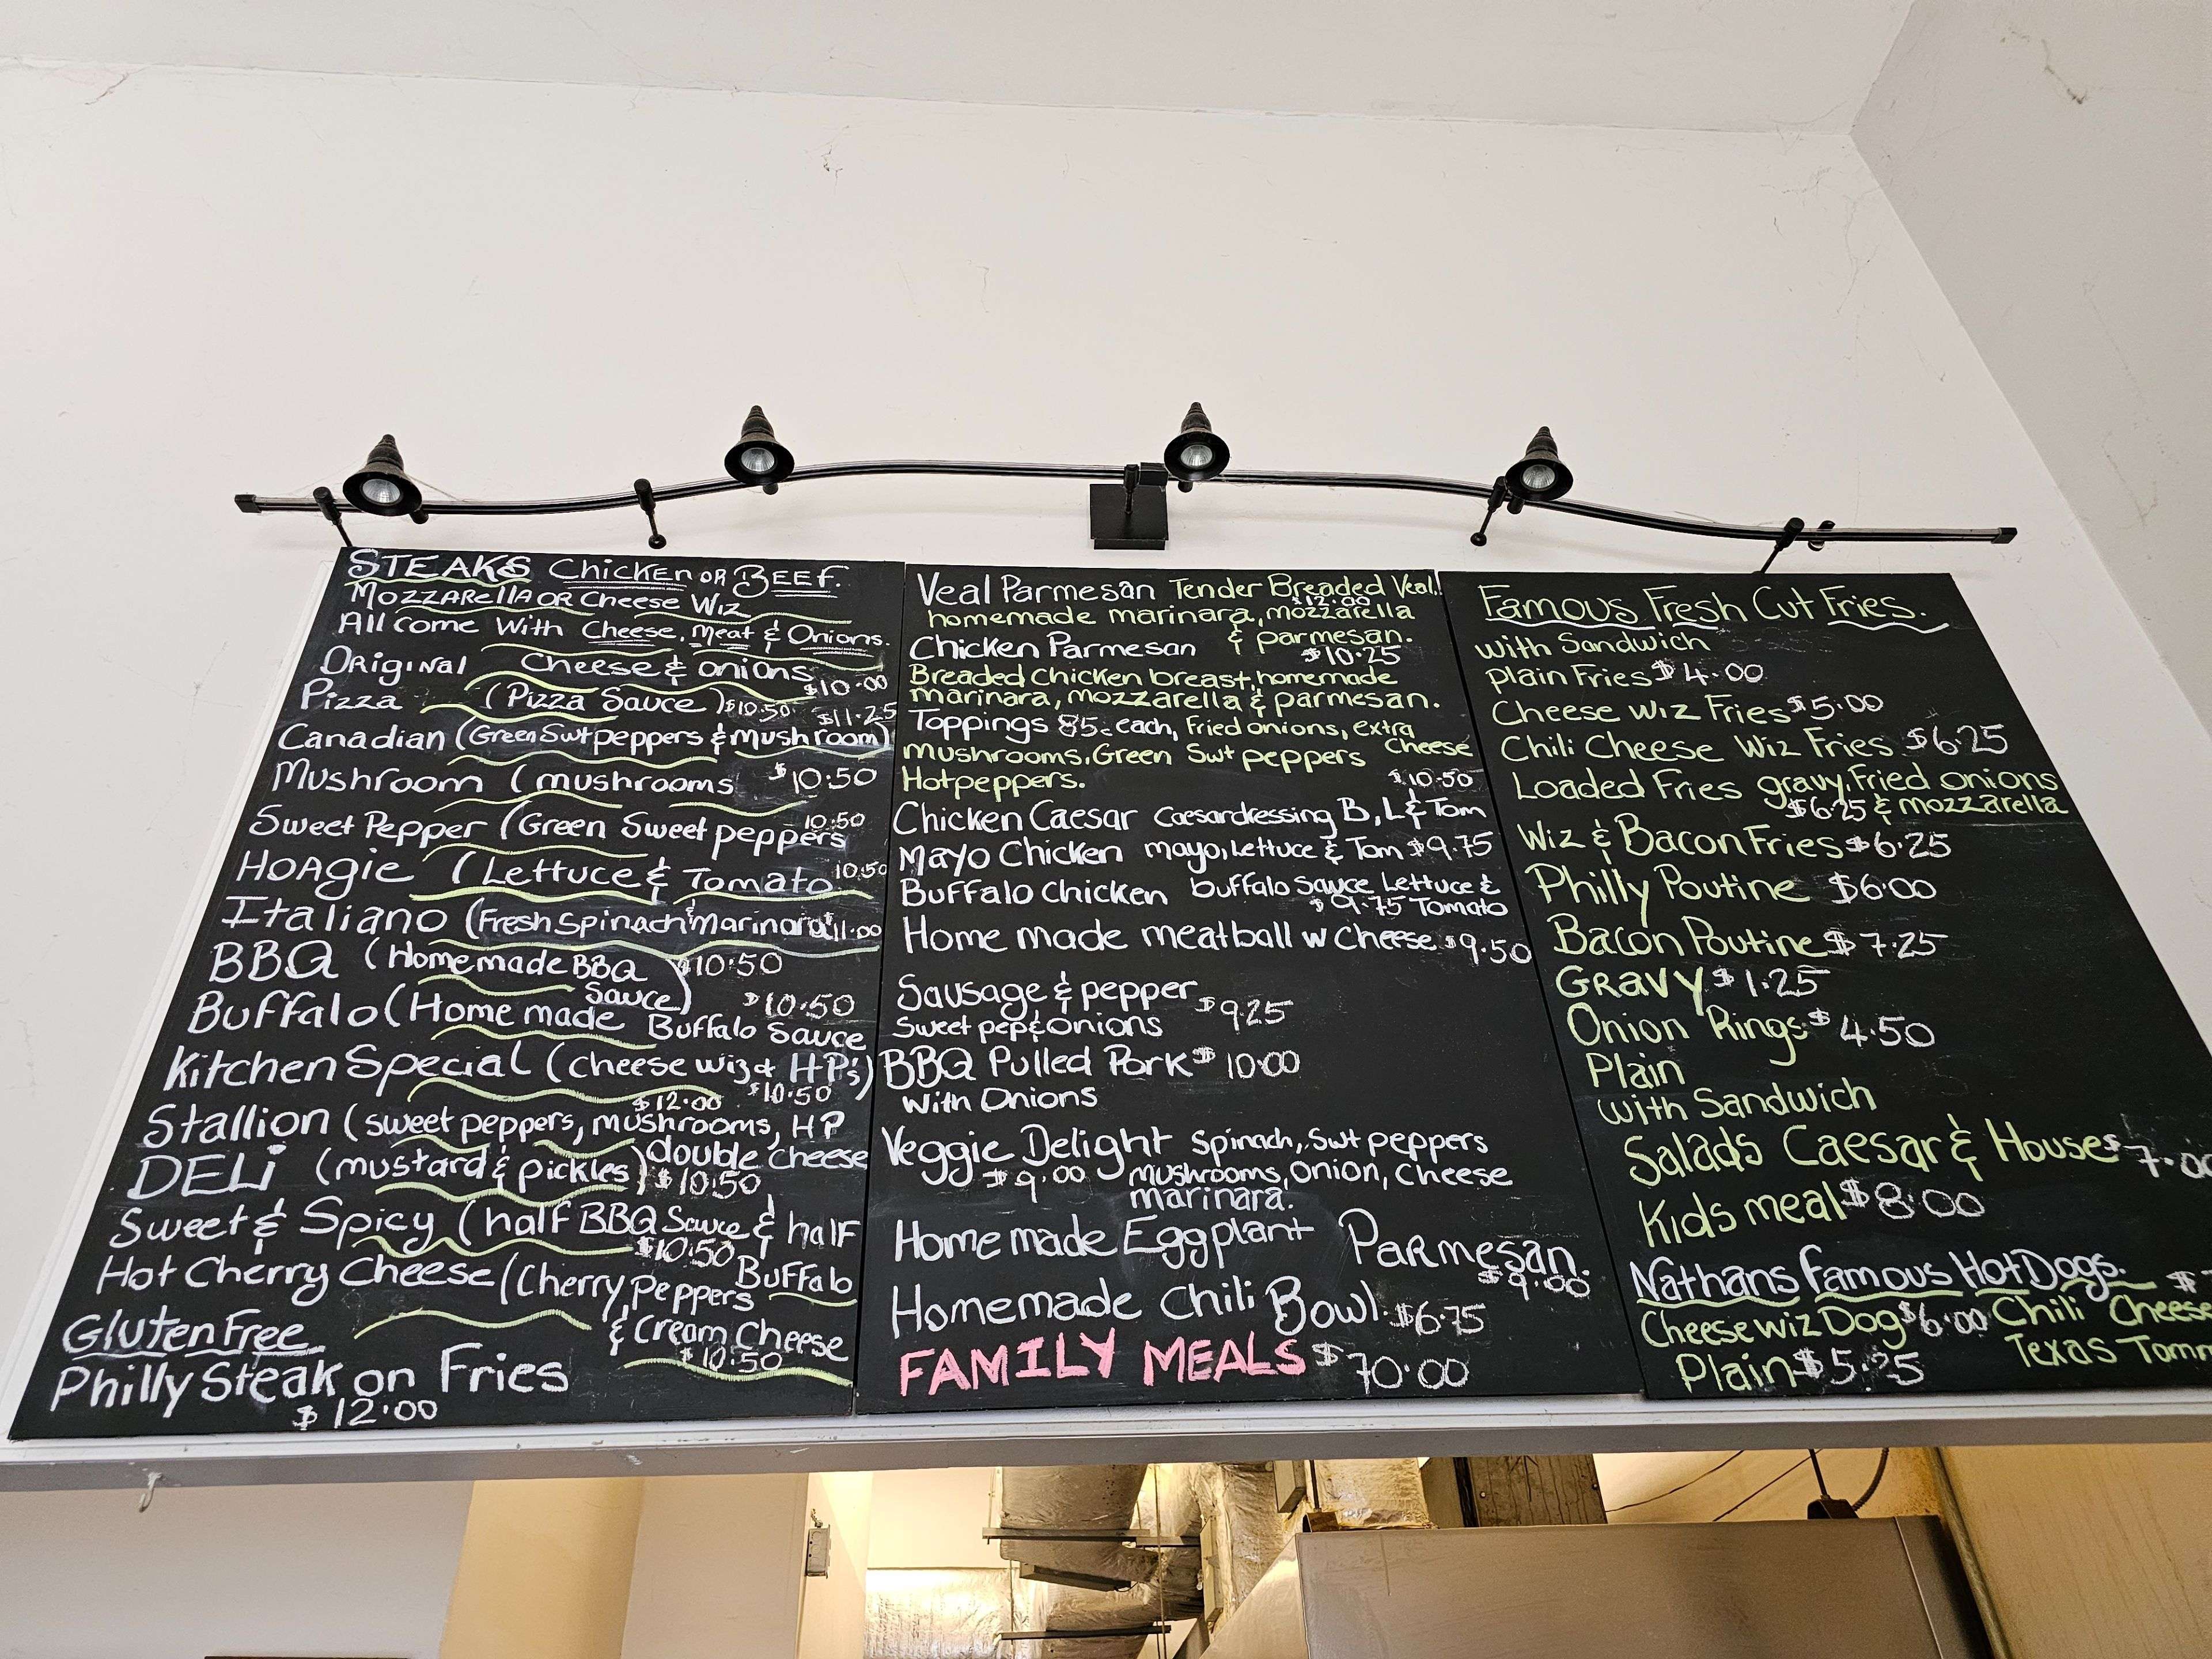 STEAKS Chicken OR BEEF.
MOZZARellA OR Cheese Wiz
All come With Cheese, Meat & Onions.
ORiginAl Cheese & onions $10.00
Pizza (Pizza Sauce) $10.50 $11.25
Canadian (Green Swt peppers & Mushroom)
Mushroom (mushrooms $10.50
Sweet Pepper (Green Sweet peppers 10.50
HOAgie (Lettuce & Tomato 10.50
Italiano (Fresh Spinach & Marinara 11.00
BBQ (Homemade BBQ $10.50
Sauce)
Buffalo (Home made Buffalo Sauce $10.50
Kitchen Special (cheese wiz & HP's)
$12.00 $10.50
Stallion (sweet peppers, mushrooms, HP
double cheese
DELi (mustard & pickles) $10.50
Sweet & Spicy (half BBQ Sauce & half
$10.50 Buffalo
Hot Cherry Cheese (Cherry Peppers
& Cream Cheese
$10.50
Gluten Free
Philly Steak on Fries
$12.00
Veal Parmesan Tender Breaded Veal,
$12.00
homemade marinara, mozzarella
& parmesan.
Chicken Parmesan $10.25
Breaded Chicken breast, homemade
marinara, mozzarella & parmesan.
Toppings 85c each, Fried onions, extra
cheese
mushrooms, Green Swt peppers
Hotpeppers. $10.50
Chicken Caesar Caesardressing B, L & Tom
Mayo Chicken mayo, lettuce & Tom $9.75
Buffalo Chicken buffalo sauce Lettuce &
$9.75 Tomato
Home made meatball w Cheese $9.50
Sausage & pepper $9.25
Sweet pep & onions
BBQ Pulled Pork $10.00
With Onions
Veggie Delight Spinach, Swt peppers
$9.00 mushrooms, onion, cheese
marinara.
Home made Eggplant Parmesan.
$9.00
Homemade Chili Bowl $6.75
FAMILY MEALS $70.00
Famous Fresh Cut Fries.
with Sandwich
plain Fries $4.00
Cheese wiz Fries $5.00
Chili Cheese Wiz Fries $6.25
Loaded Fries gravy, Fried onions
$6.25 & mozzarella
Wiz & Bacon Fries $6.25
Philly Poutine $6.00
Bacon Poutine $7.25
Gravy $1.25
Onion Rings $4.50
Plain
with Sandwich
Salads Caesar & House $7.00
Kids meal $8.00
Nathans Famous Hot Dogs. $
Cheese wiz Dog $6.00 Chili Cheese
Texas Tomm
Plain $5.25